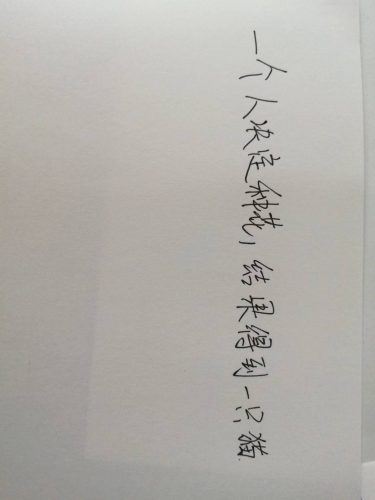 一个人决定种花，结果得到一只猫